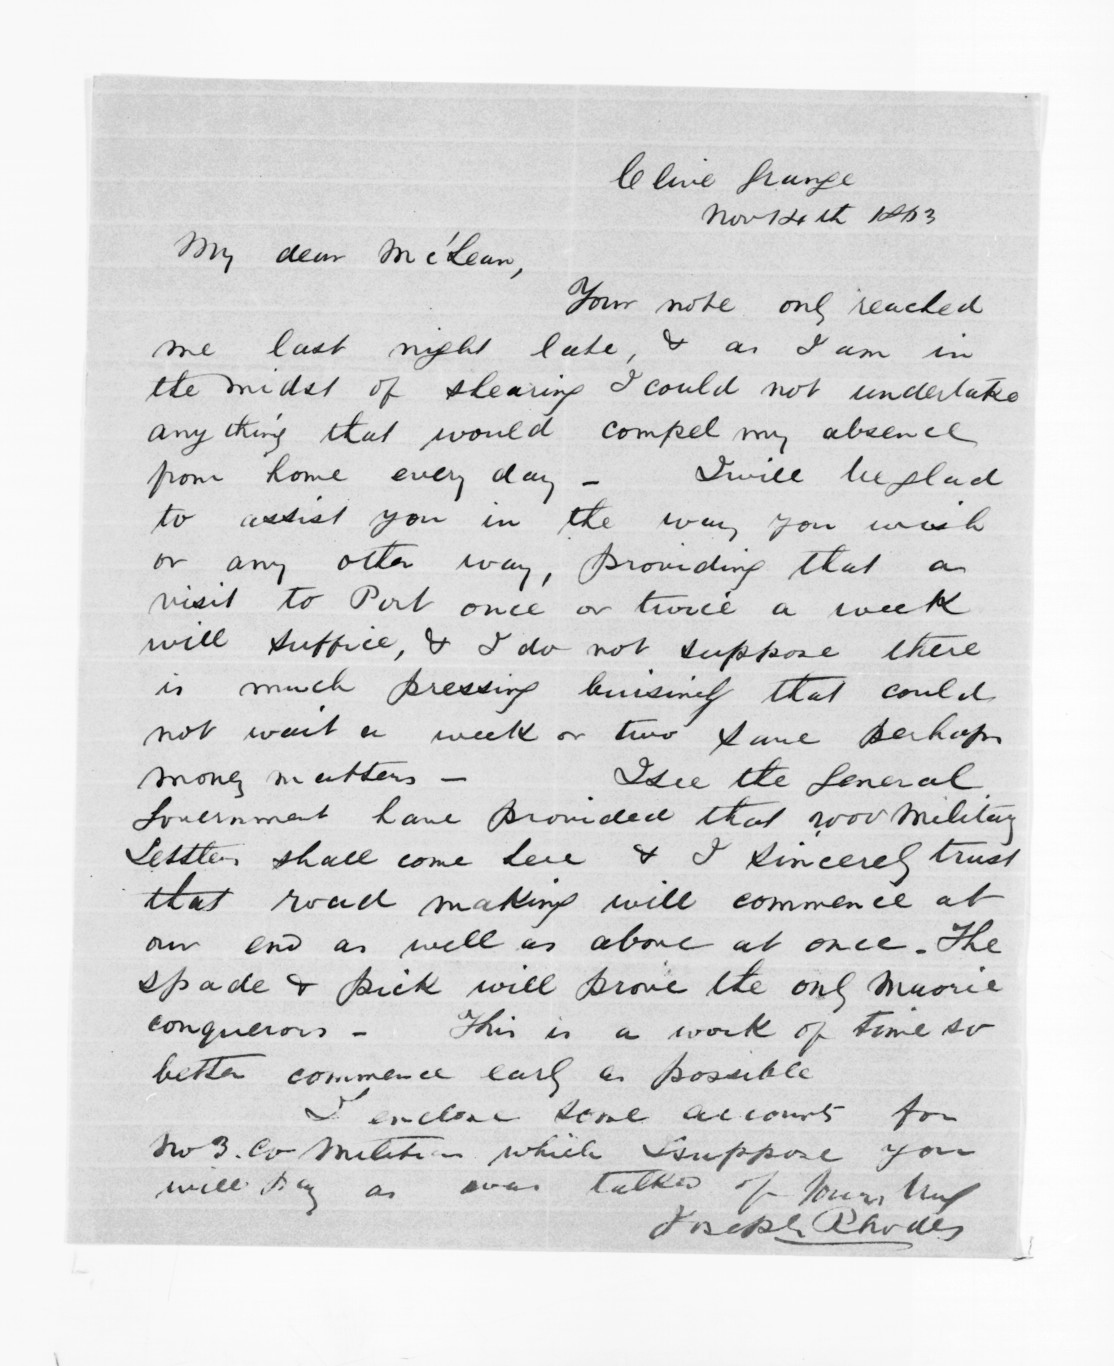 Clive Grange
Nov 14th 1863
My dear McLean,
Your note only reached
me last night late, & as I am in
the midst of shearing I could not undertake
any thing that would compel my absence
from home every day - I will be glad
to assist you in the way you wish
or any other way, providing that a
visit to Port once or twice a week
will suffice, & I do not suppose there
is much pressing buisiness that could
not wait a week or two save perhaps
money matters - I see the General
Government have provided that 2000 Military
Settlers shall come here & I sincerely trust
that road making will commence at
our end as well as above at once. The
spade & pick will prove the only Maorie
conquerors - This is a work of time so
better commence early as possible
I enclose some accounts for
No 3. Co Militia which I suppose you
will pay as was talked of Yours truly
Joseph Rhodes